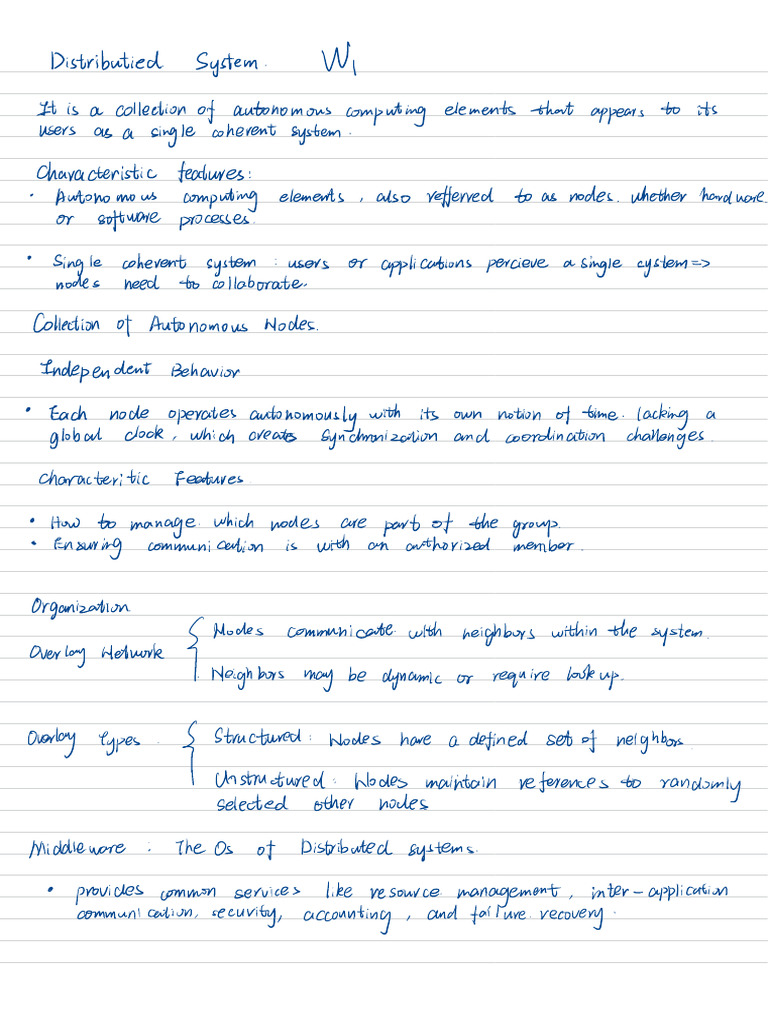 Distributied System. W1
It is a collection of autonomous computing elements that appears to its
users as a single coherent system.
Characteristic features:
• Autonomous computing elements, also refferred to as nodes. whether hardware
or software processes.
• Single coherent system : users or applications percieve a single cystem =>
nodes need to collaborate.
Collection of Autonomous Nodes.
Independent Behavior
• Each node operates autonomously with its own notion of time. lacking a
global clock, which creates synchronization and coordination challenges.
Characteritic Features
• How to manage which nodes are part of the group.
• Ensuring communication is with an authorized member.
Organization
Overlay Network { Nodes communicate with neighbors within the system.
Neighbors may be dynamic or require look up.
Overlay Types. { Structured: Nodes have a defined set of neighbors.
Unstructured: Nodes maintain references to randomly
selected other nodes
Middleware : The Os of Distributed systems.
• provides common services like resource management, inter-application
communication, security, accounting, and failure recovery.